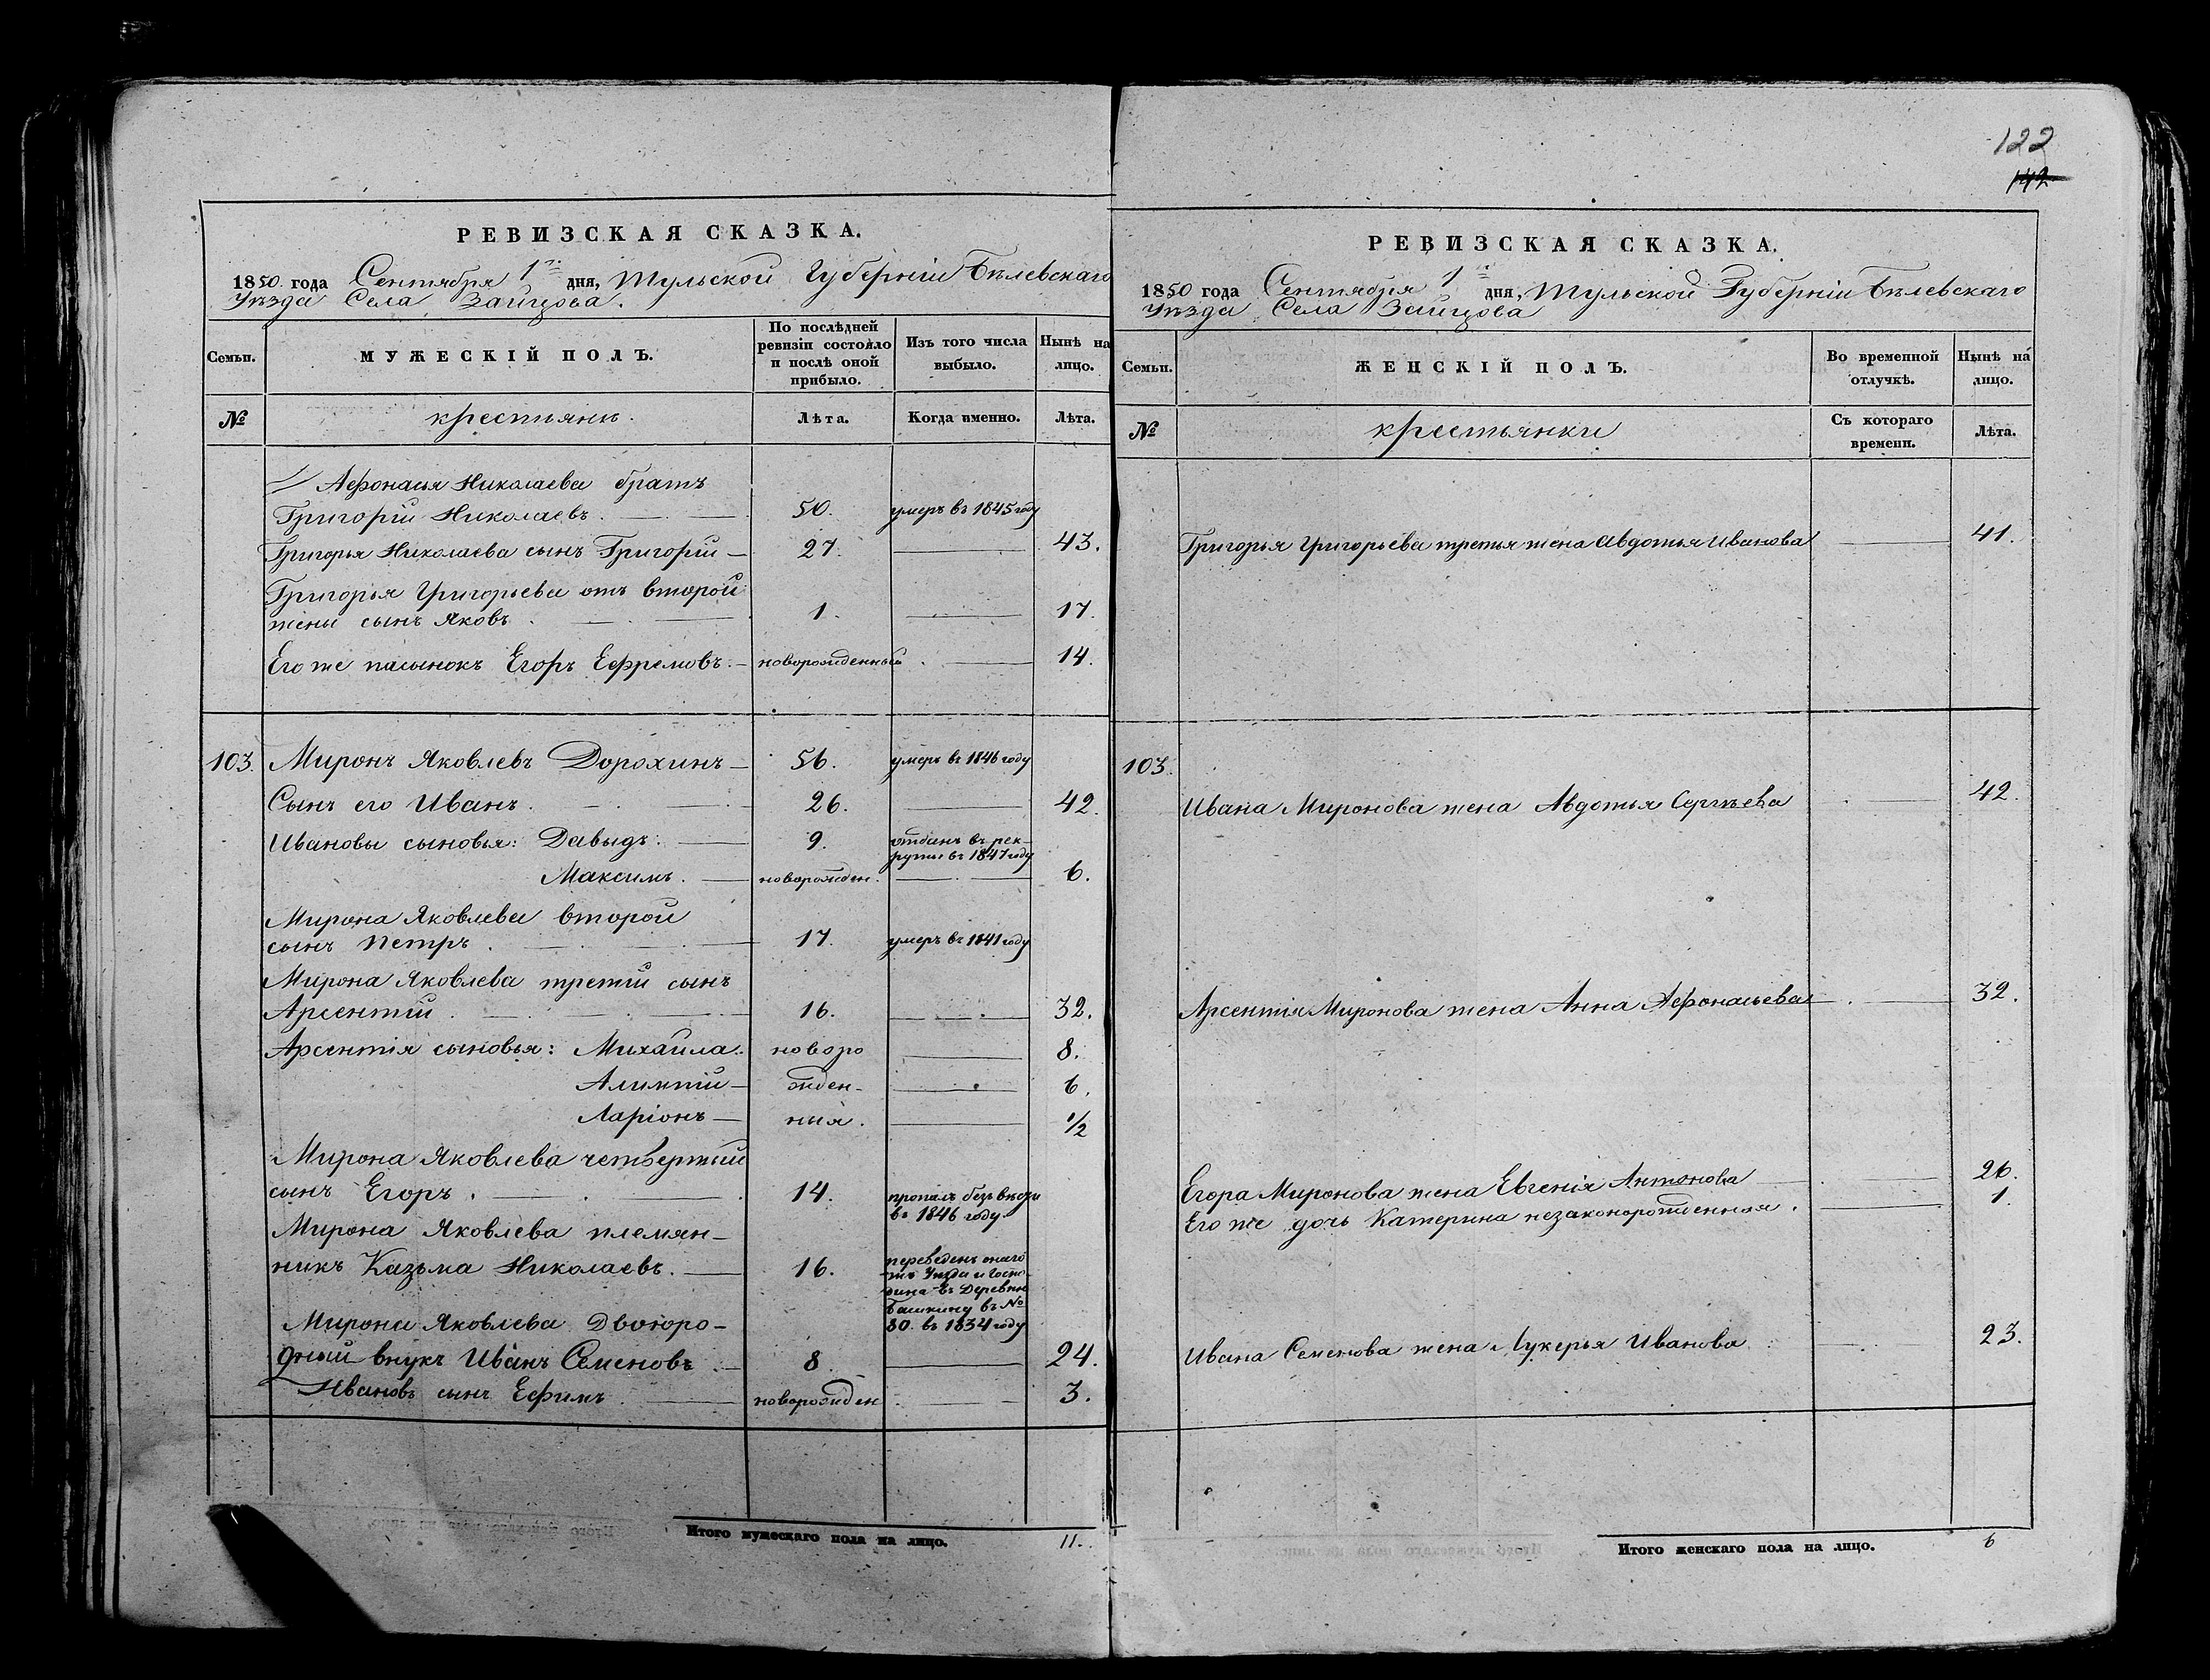 122
142
РЕВИЗСКАЯ СКАЗКА.
1850. года Сентября 1го дня, Тульской Губерніи Бѣлевскаго
Уѣзда Села Зайцова.
Семьи.
МУЖЕСКІЙ ПОЛЪ.
По послѣдней
ревизіи состояло
и послѣ оной
прибыло.
Изъ того числа
выбыло.
Нынѣ на
лицо.
№
крестьянъ.
Лѣта.
Когда именно.
Лѣта.
Афонасья Николаева братъ
Григорій Николаевъ. 50. умеръ въ 1845 году
Григорья Николаева сынъ Григорій 27. 43.
Григорья Григорьева отъ второй
жены сынъ Яковъ. 1. 17.
Его же пасынокъ Егоръ Ефремовъ. новорожденный 14.
103. Миронъ Яковлевъ Дорохинъ 56. умеръ въ 1846 году
Сынъ его Иванъ. 26. 42.
Ивановы сыновья: Давыдъ. 9. отданъ въ рек-
руты въ 1847 году
Максимъ. новорожден. 6.
Мирона Яковлева второй
сынъ Петръ. 17. умеръ въ 1841 году
Мирона Яковлева третій сынъ
Арсентій. 16. 32.
Арсентія сыновья: Михайла. новоро 8.
Алимпій жден- 6.
Ларіонъ ныя. 1/2
Мирона Яковлева четвертый
сынъ Егоръ. 14. пропалъ безъ вести
въ 1846 году
Мирона Яковлева племян-
никъ Казьма Николаевъ. 16. переведенъ тагo
жъ Уѣзда и Госпо-
дина въ Деревню
Башкину въ №
80. въ 1834 году
Мирона Яковлева Двоюро-
дный внукъ Иванъ Семеновъ 8. 24.
Ивановъ сынъ Ефимъ. новорожден 3.
Итого мужескаго пола на лицо. 11.
РЕВИЗСКАЯ СКАЗКА.
1850 года Сентября 1 дня, Тульской Губерніи Бѣлевскаго
Уѣзда Села Зайцова
Семьи.
ЖЕНСКІЙ ПОЛЪ.
Во временной
отлучкѣ.
Нынѣ на
лицо.
№
крестьянки
Съ котораго
времени.
Лѣта.
Григорья Григорьева третья жена Авдотья Иванова 41.
103.
Ивана Миронова жена Авдотья Сергѣева 42.
Арсентія Миронова жена Анна Афонасьева 32.
Егора Миронова жена Евгенія Антонова 26.
Его же дочь Катерина незаконорожденная. 1.
Ивана Семенова жена Лукерья Иванова 23.
Итого женскаго пола на лицо. 6